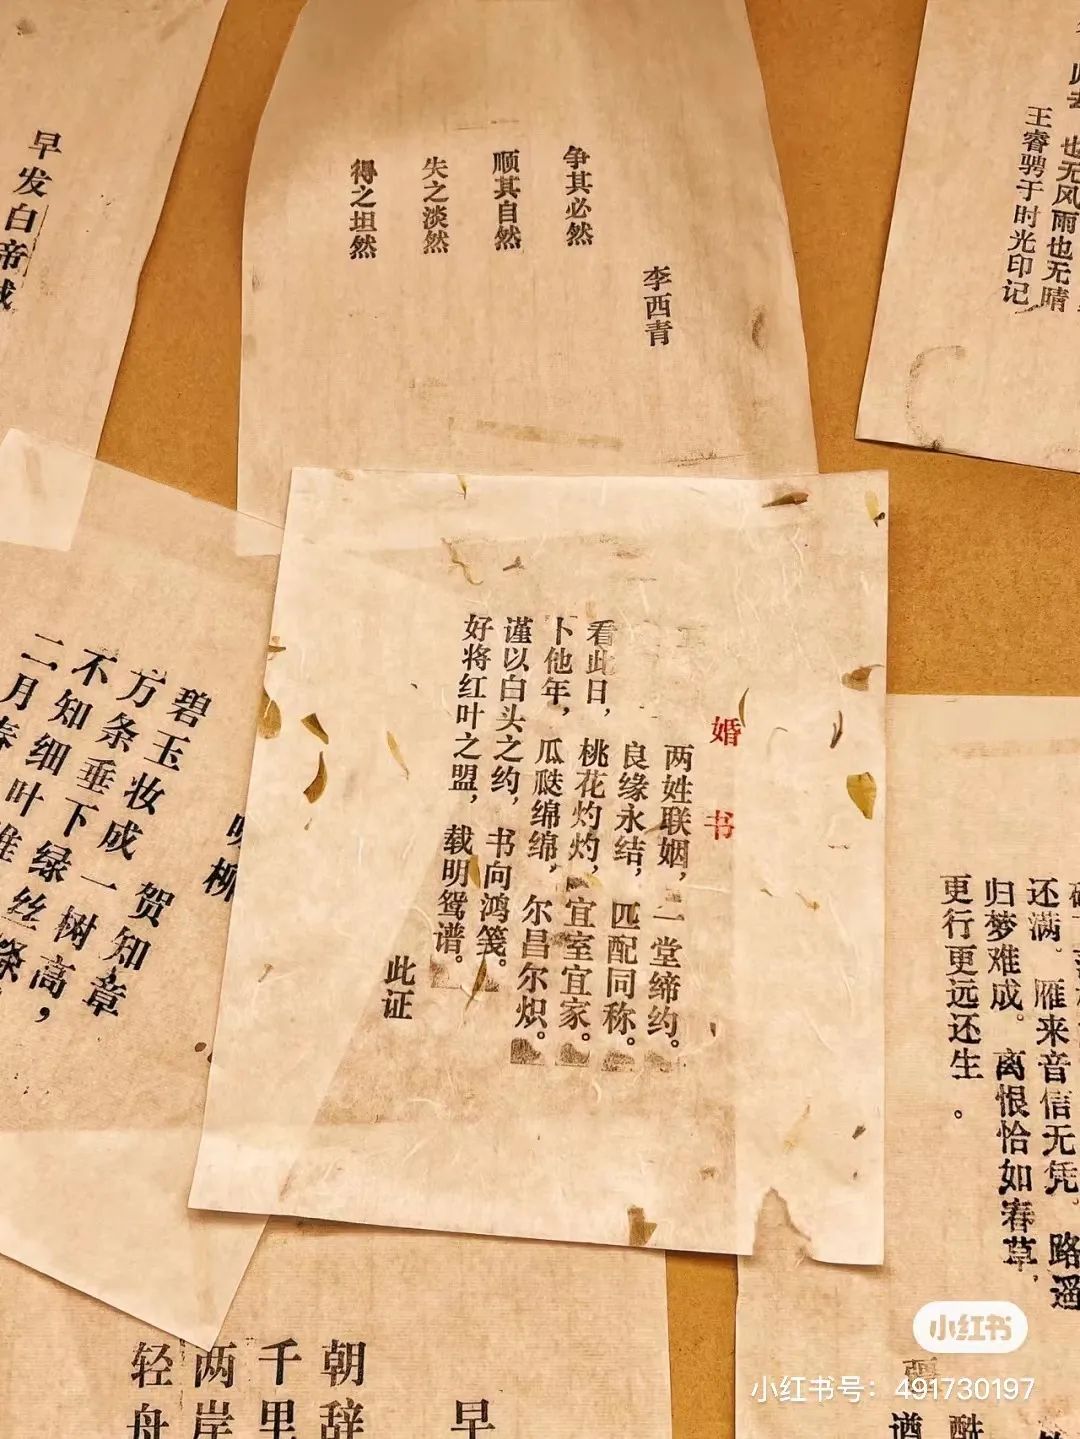 早发白帝城
李西青
争其必然
顺其自然
失之淡然
得之坦然
也无风雨也无晴
王睿骋于时光印记
咏柳
贺知章
碧玉妆成一树高，
方条垂下绿丝绦
不知细叶谁
二月春
婚书
两姓联姻，一堂缔约。
良缘永结，匹配同称。
看此日，桃花灼灼，宜室宜家。
卜他年，瓜瓞绵绵，尔昌尔炽。
谨以白头之约，书向鸿笺。
好将红叶之盟，载明鸳谱。
此证
还满。雁来音信无凭，路遥
归梦难成。离恨恰如春草，
更行更远还生。
早
朝辞
千里
两岸
轻舟
小红书
小红书号：491730197